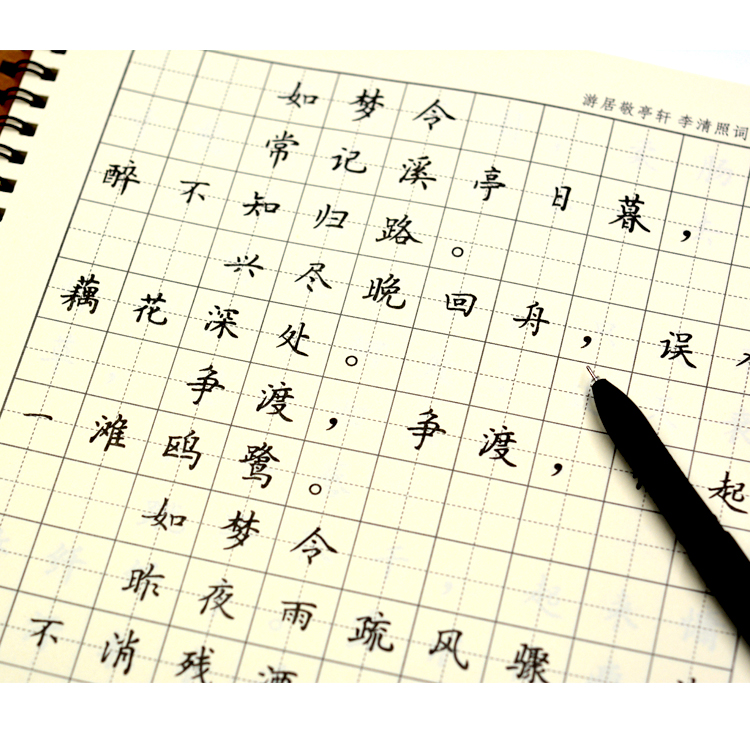 游居敬亭轩 李清照词
如梦令
常记溪亭日暮，
醉不知归路。
兴尽晚回舟，误
藕花深处。
争渡，争渡，起
一滩鸥鹭。
如梦令
昨夜雨疏风骤
不消残酒